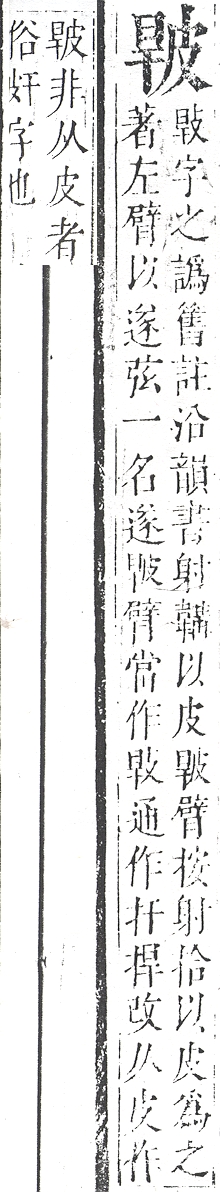 字之譌舊註沿韻書射韝以皮臂按射拾以皮爲之
著左臂以遂弦一名遂臂當作通作扞捍改从皮作
非从皮者
俗奸字也